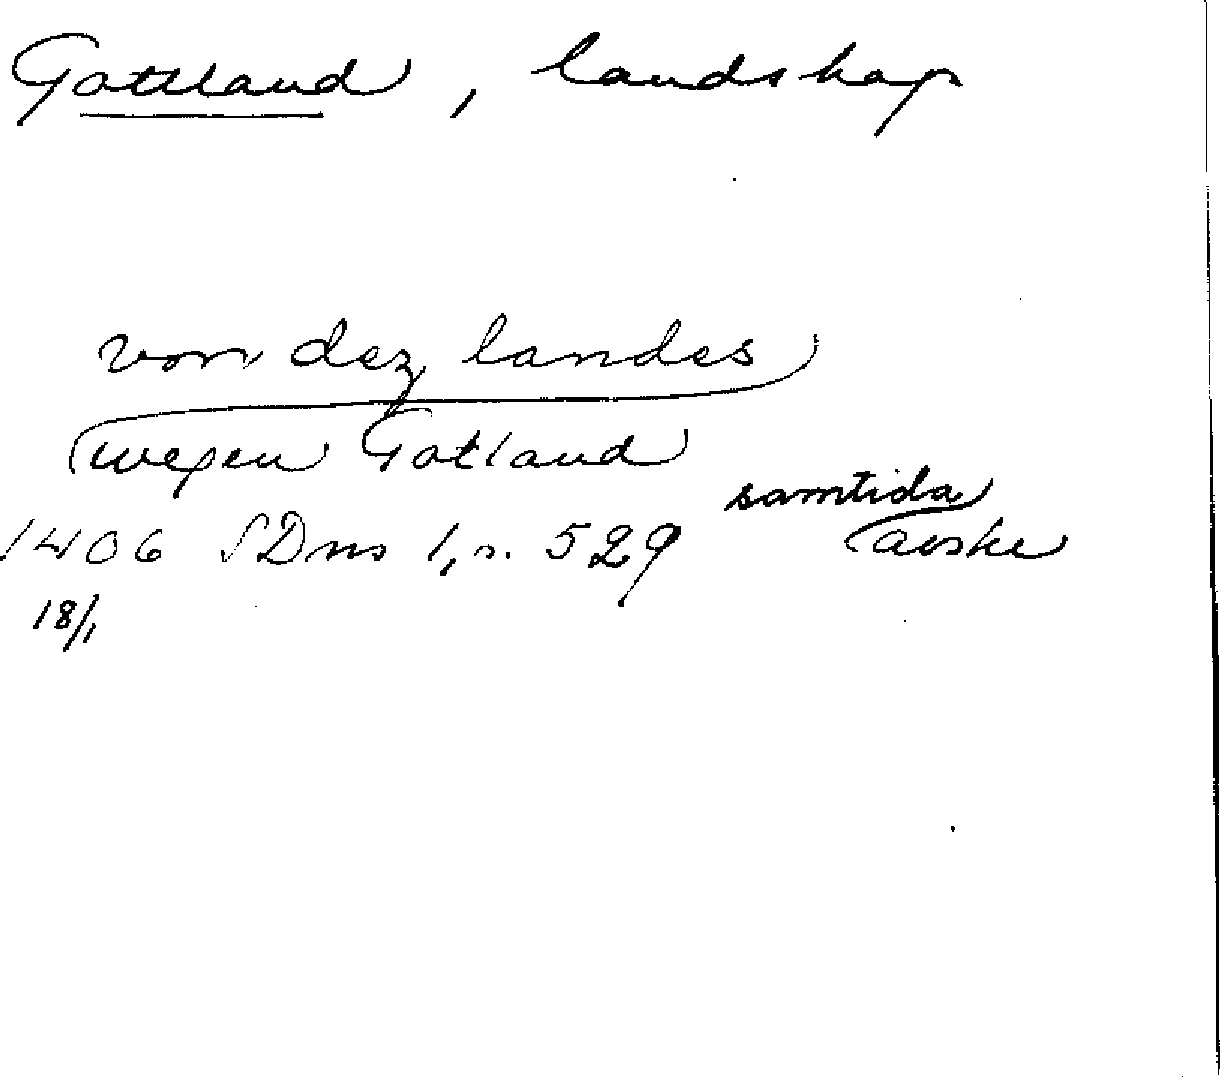 Gottland, landskap
von dez landes
wegen Gotland
samtida
1406 SDns 1, s. 529 avskr
18/1